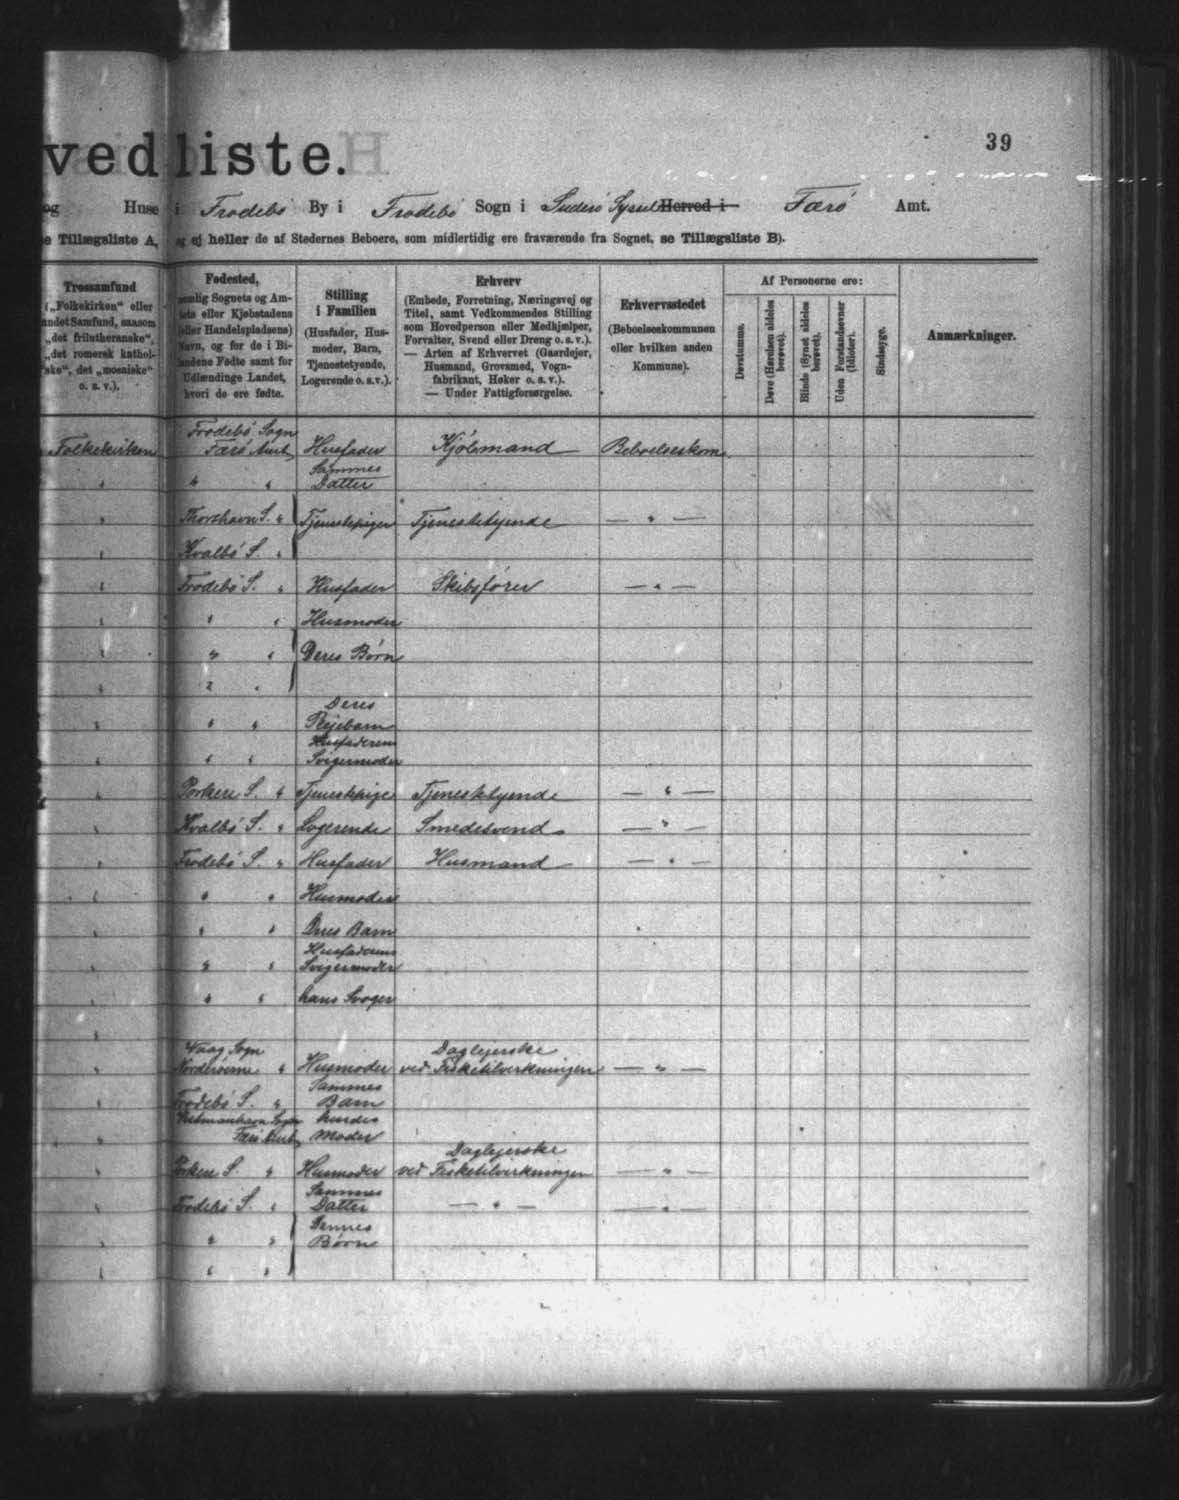 vedliste.
39
og Huse i Frodebö By i Frodebö Sogn i Suderö Syssel Herred i Færö Amt.
e Tillægsliste A, og ej heller de af Stedernes Beboere, som midlertidig ere fraværende fra Sognet, se Tillægsliste B).
Trossamfund
(„Folkekirken“ eller
andet Samfund, saasom
„det frilutheranske“,
„det romersk kathol-
ske“, det „mosaiske“
o. s. v.).
Fødested,
nemlig Sognets og Am-
tets eller Kjøbstadens
(eller Handelspladsens)
Navn, og for de i Bi-
landene Fødte samt for
Udlændinge Landet,
hvori de ere fødte.
Stilling
i Familien
(Husfader, Hus-
moder, Barn,
Tjenestetyende,
Logerende o.s.v.).
Erhverv
(Embede, Forretning, Næringsvej og
Titel, samt Vedkommendes Stilling
som Hovedperson eller Medhjælper,
Forvalter, Svend eller Dreng o. s. v.).
— Arten af Erhvervet (Gaardejer,
Husmand, Grovsmed, Vogn-
fabrikant, Høker o. s. v.).
— Under Fattigforsørgelse.
Erhvervsstedet
(Beboelseskommunen
eller hvilken anden
Kommune).
Af Personerne ere:
Døvstumme.
Døve (Hørelsen aldeles
berøvet).
Blinde (Synet aldeles
berøvet).
Uden Forstandsevner
(Idioter).
Sindssyge.
Anmærkninger.
Folkekirken Frodebö Sogn
Færö Amt Husfader Kjöbmand Beboelseskom
" " " Sammes
Datter
" Thorshavn S. " Tjenestepiger Tjenestetyende — " —
" Hvalbö S. "
" Frodebö S. " Husfader Skibsförer — " —
" " " Husmoder
" " " Deres Börn
" " "
" " " Deres
Plejebarn
" " " Husfaderens
Svigermoder
" Porkere S. " Tjenestepige Tjenestetyende — " —
" Hvalbö S. " Logerende Smedesvend — " —
" Frodebö S. " Husfader Husmand — " —
" " " Husmoder
" " " Deres Barn
" " " Husfaderens
Svigermoder
" " " hans Svoger
"
" Waag Sogn
Norderöerne " Husmoder Daglejerske
ved Fisketilvirkningen — " —
" Frodebö S. " Sammes
Barn
" Vestmanhavn Sogn
Færö Amt hendes
Moder
" Porkere S. " Husmoder Daglejerske
ved Fisketilvirkningen — " —
" Frodebö S. " Sammes
Datter — " — — " —
" " " Dennes
Börn
" " "